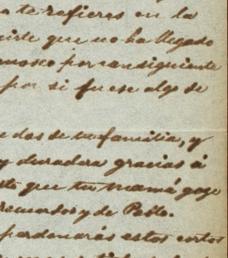 te refieres en la
decirte que no ha llegado
conozco por consiguiente
por si fuese algo de
dos de tu familia, y
y duradera gracias á
que tu mamá goze
recuerdos y de Pablo.
perdonarás estos cortos